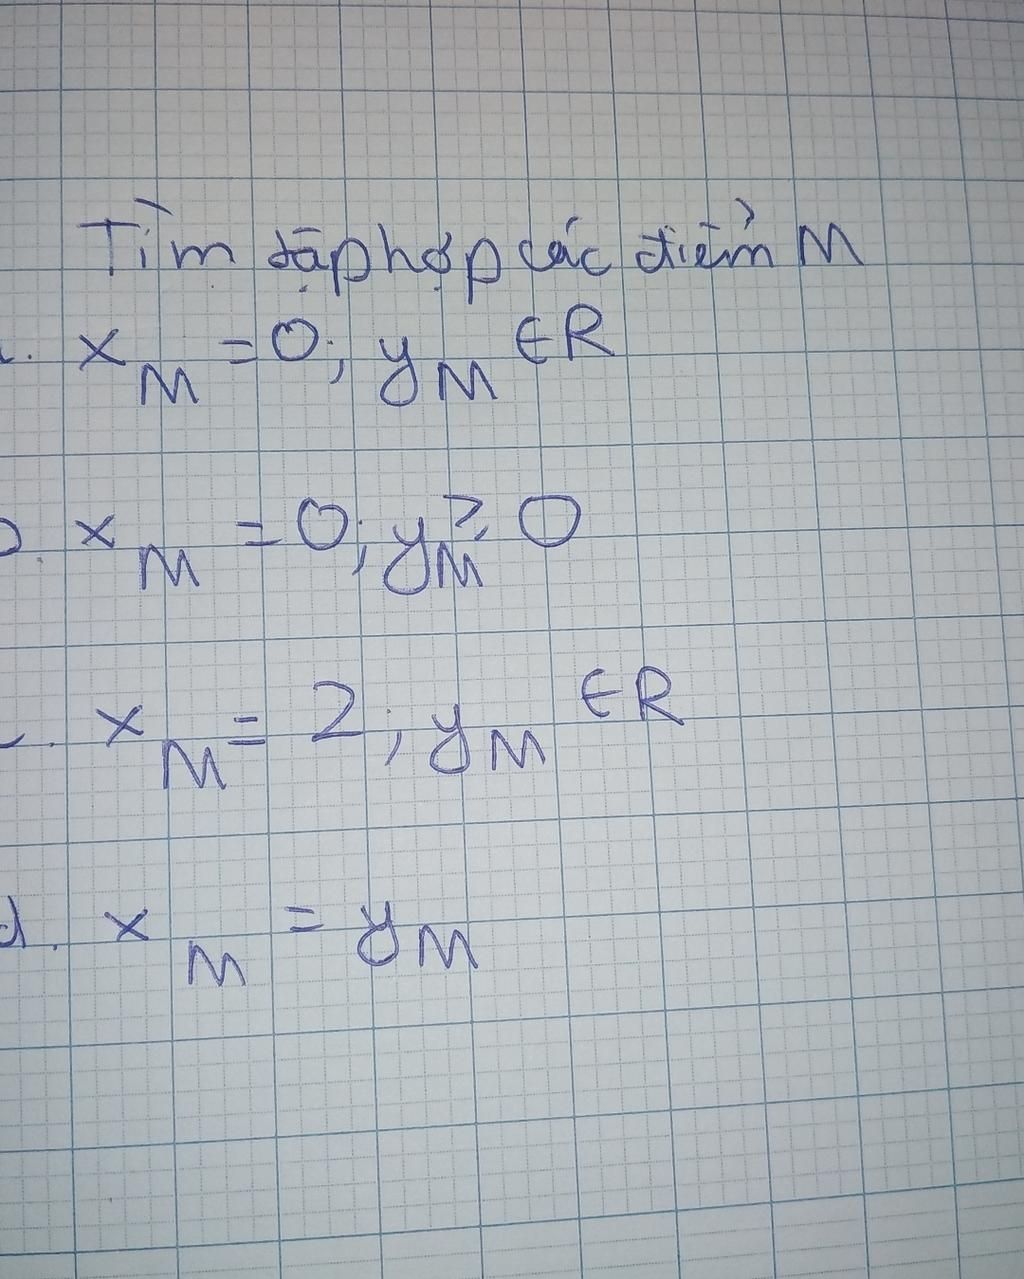 Tìm tập hợp các điểm M
. x_M = 0; y_M ∈ R
. x_M = 0; y_M ≥ 0
. x_M = 2; y_M ∈ R
d. x_M = y_M